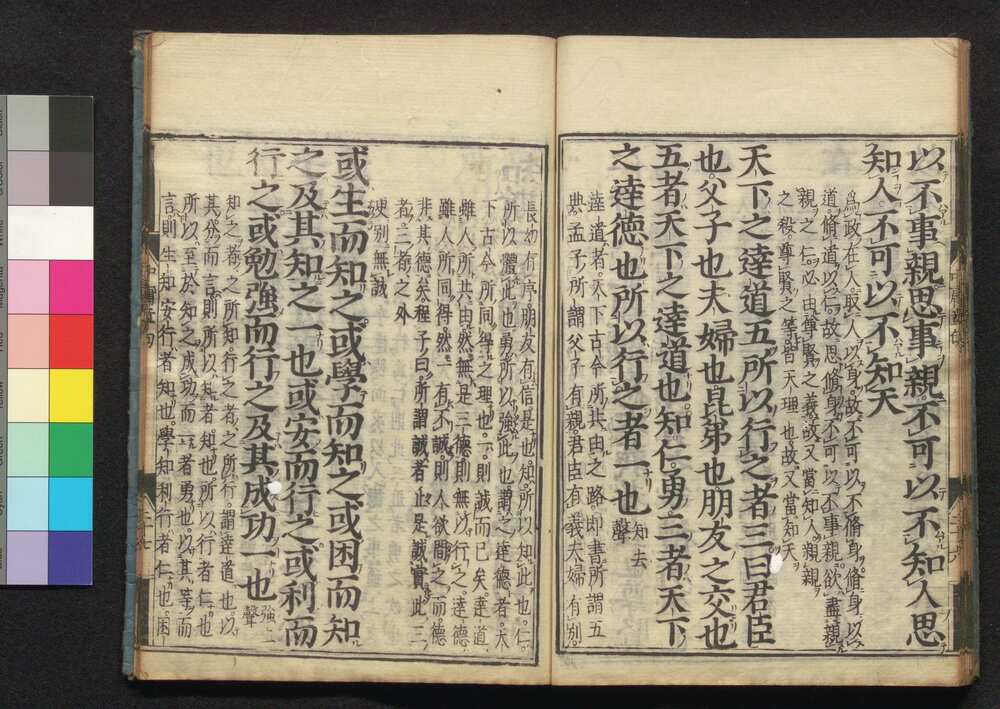 以不事親思事親不可以不知人思
知人不可以不知天
爲政在人取人以身故不可以不脩身脩身以
道脩道以仁故思脩身不可以不事親欲盡親
親之仁必由尊賢之義故又當知人親親
之殺尊賢之等皆天理也故又當知天
天下之達道五所以行之者三曰君臣
也父子也夫婦也昆弟也朋友之交也
五者天下之達道也知仁勇三者天下
之達德也所以行之者一也知去聲
達道者天下古今所共由之路卽書所謂五
典孟子所謂父子有親君臣有義夫婦有別
長幼有序朋友有信是也知所以知此也仁
所以體此也勇所以強此也謂之達德者天
下古今所同得之理也一則誠而已矣達道
雖人所共由然無是三德則無以行之達德
雖人所同得然一有不誠則人欲間之而德
非其德矣程子曰所謂誠者止是誠實此三
者三者之外
更別無誠
或生而知之或學而知之或困而知
之及其知之一也或安而行之或利而
行之或勉強而行之及其成功一也強上聲
知之者之所知行之者之所行謂達道也以
其分而言則所以知者知也所以行者仁也
所以至於知之成功而一者勇也以其等而
言則生知安行者知也學知利行者仁也困